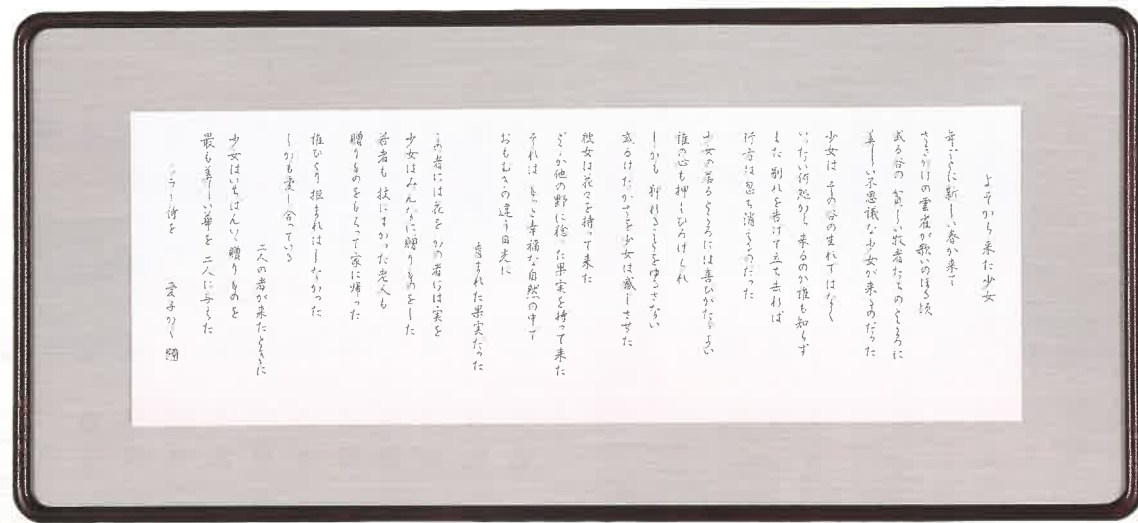 よそから来た少女
年ごとに新しい春が来て
さきがけの雲雀が歌いのぼる頃
或る谷の貧しい牧者たちのところに
美しい不思議な少女が来るのだった
少女は その谷の生れではなく
いったい何処から来るのか誰も知らず
また 別れを告げて立ち去れば
行方は忽ち消えるのだった
少女の居るところには喜びがただよい
誰の心も押しひろげられ
しかも狎れることをゆるさない
或るけだかさを少女は感じさせた
彼女は花々を持って来た
どこか他の野に稔った果実を持って来た
それは もっと幸福な自然の中で
おもむきの違う日光に
育まれた果実だった
この者には花を かの者には実を
少女はみんなに贈りものをした
若者も 杖にすがった老人も
贈りものをもらって家に帰った
誰ひとり拒まれはしなかった
しかも愛し合っている
二人の者が来たときに
少女はいちばんいい贈りものを
最も美しい華を 二人に与えた
シラー詩を 愛子かく